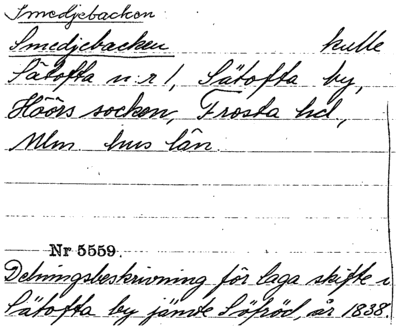 Smedjebacken
Smedjebacken kulle
Sätofta n:r 1, Sätofta by,
Höörs socken, Frosta hd,
Mlm hus län.
Nr 5559.
Delningsbeskrivning för laga skifte i
Sätofta by jämte Söfröd, år 1838.